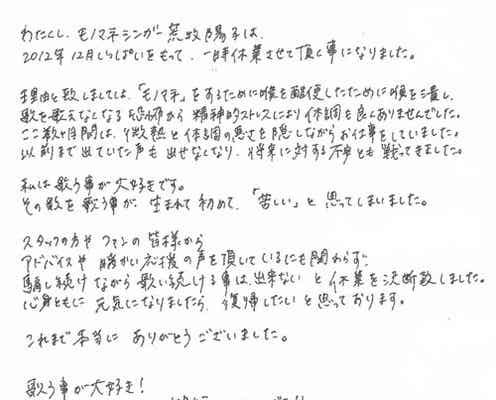 わたくし、モノマネシンガー荒牧陽子は、
2012年12月いっぱいをもって、一時休業させて頂く事になりました。
理由と致しましては、「モノマネ」をするために喉を酷使したために喉を潰し、
歌を歌えなくなる恐怖から精神的ストレスにより体調も良くありませんでした。
ここ数ヶ月間は、微熱と体調の悪さを隠しながらお仕事をしていました。
以前まで出ていた声も出せなくなり、将来に対する不安とも戦ってきました。
私は歌う事が大好きです。
その歌を歌う事が、生まれて初めて、「苦しい」と思ってしまいました。
スタッフの方やファンの皆様から
アドバイスや暖かい応援の声を頂いているにも関わらず、
騙し続けながら歌い続ける事は、出来ないと休業を決断致しました。
心身ともに元気になりましたら、復帰したいと思っております。
これまで本当にありがとうございました。
歌う事が大好き!